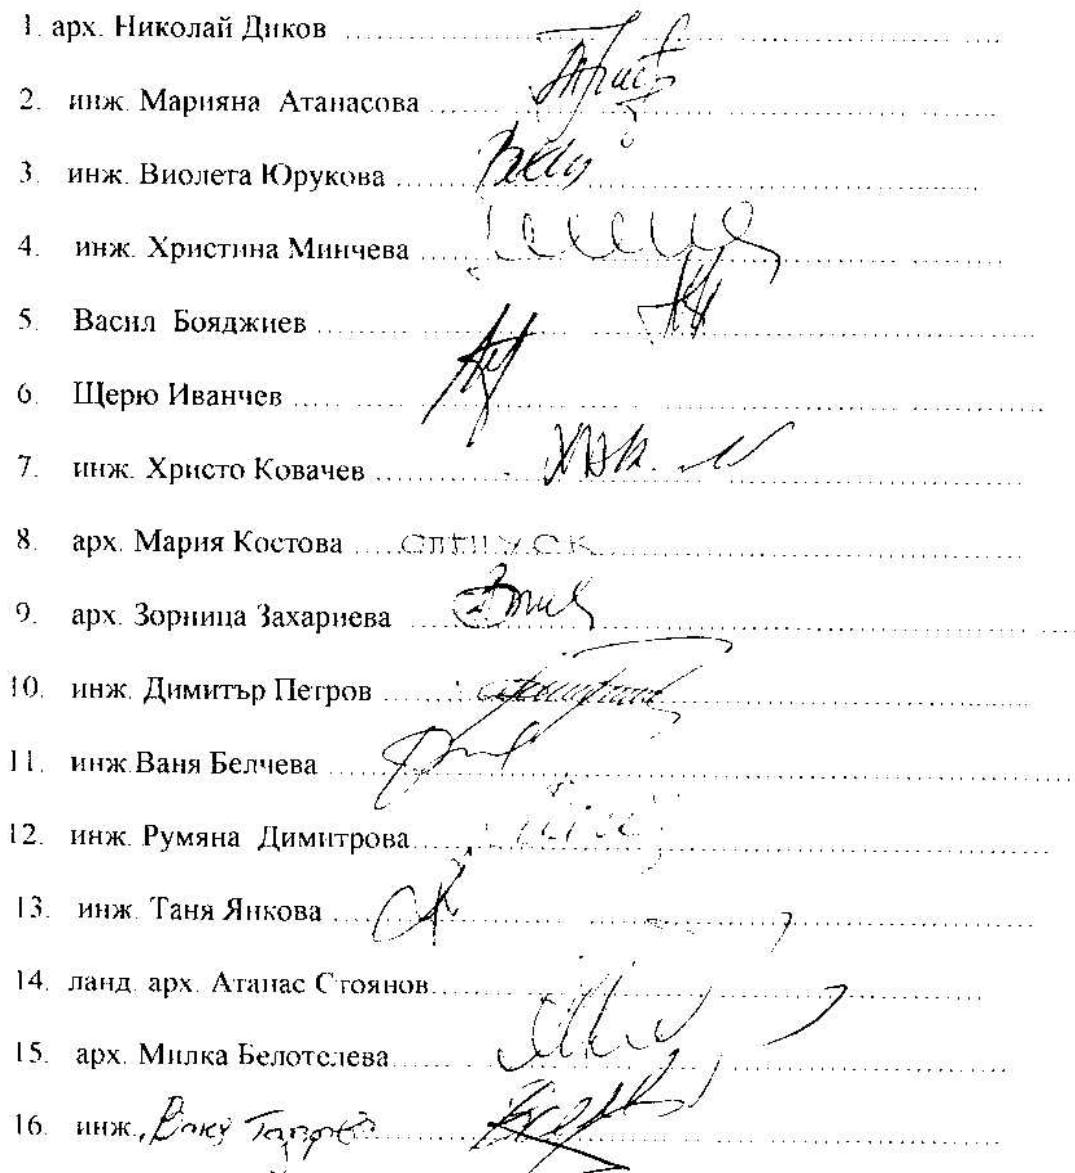 1. арх. Николай Диков
2. инж. Марияна Атанасова
3. инж. Виолета Юрукова
4. инж. Христина Минчева
5. Васил Бояджиев
6. Щерю Иванчев
7. инж. Христо Ковачев
8. арх. Мария Костова отпуск
9. арх. Зорница Захариева
10. инж. Димитър Петров
11. инж.Ваня Белчева
12. инж. Румяна Димитрова
13. инж. Таня Янкова
14. ланд. арх. Атанас Стоянов
15. арх. Милка Белотелева
16. инж.